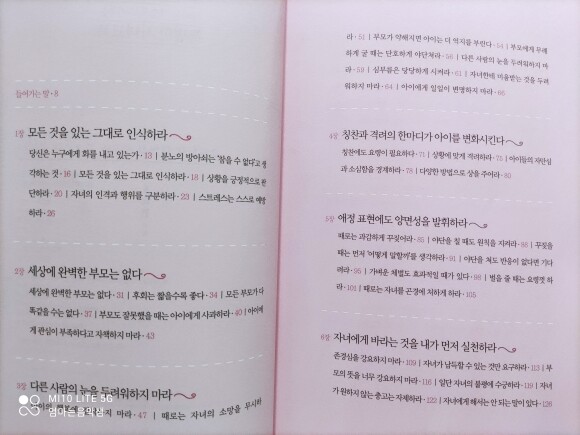 들어가는 말 • 8
1장 모든 것을 있는 그대로 인식하라
당신은 누구에게 화를 내고 있는가 • 13 | 분노의 방아쇠는 '참을 수 없다'고 생
각하는 것 • 16 | 모든 것을 있는 그대로 인식하라 • 18 | 상황을 긍정적으로 판
단하라 • 20 | 자녀의 인격과 행위를 구분하라 • 23 | 스트레스는 스스로 예방
하라 • 26
2장 세상에 완벽한 부모는 없다
세상에 완벽한 부모는 없다 • 31 | 후회는 짧을수록 좋다 • 34 | 모든 부모가 다
똑같을 수는 없다 • 37 | 부모도 잘못했을 때는 아이에게 사과하라 • 40 | 아이에
게 관심이 부족하다고 자책하지 마라 • 43
3장 다른 사람의 눈을 두려워하지 마라
마라 • 47 | 때로는 자녀의 소망을 무시하
라 • 51 | 부모가 약해지면 아이는 더 억지를 부린다 • 54 | 부모에게 무례
하게 굴 때는 단호하게 야단쳐라 • 56 | 다른 사람의 눈을 두려워하지 마
라 • 59 | 심부름은 당당하게 시켜라 • 61 | 자녀한테 미움받는 것을 두려
워하지 마라 • 64 | 아이에게 일일이 변명하지 마라 • 66
4장 칭찬과 격려의 한마디가 아이를 변화시킨다
칭찬에도 요령이 필요하다 • 71 | 상황에 맞게 격려하라 • 75 | 아이들의 자만심
과 소심함을 경계하라 • 78 | 다양한 방법으로 상을 주어라 • 80
5장 애정 표현에도 양면성을 발휘하라
때로는 과감하게 꾸짖어라 • 85 | 야단을 칠 때도 원칙을 지켜라 • 88 | 꾸짖을
때는 먼저 '어떻게 말할까'를 생각하라 • 91 | 야단을 쳐도 반응이 없다면 기다
려라 • 95 | 가벼운 체벌도 효과적일 때가 있다 • 98 | 벌을 줄 때는 요령껏 하
라 • 101 | 때로는 자녀를 곤경에 처하게 하라 • 105
6장 자녀에게 바라는 것을 내가 먼저 실천하라
존경심을 강요하지 마라 • 109 | 자녀가 납득할 수 있는 것만 요구하라 • 113 | 부
모의 뜻을 너무 강요하지 마라 • 116 | 일단 자녀의 불평에 수긍하라 • 119 | 자녀
가 원하지 않는 충고는 자제하라 • 122 | 자녀에게 해서는 안 되는 말이 있다 • 126
MI 10 LITE 5G